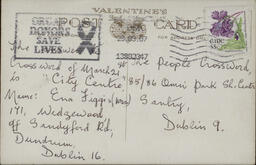 VALENTINE'S
POST CARD
DONORS
SAVE
LIVES
The People Crossword,
Crossword of March 21
City Centre, 85/86 Omni Park Sh. Centre
Name: Ena Figgis Santry,
171, Wedgewood Dublin 9.
off Sandyford Rd,
Dundrum,
Dublin 16.